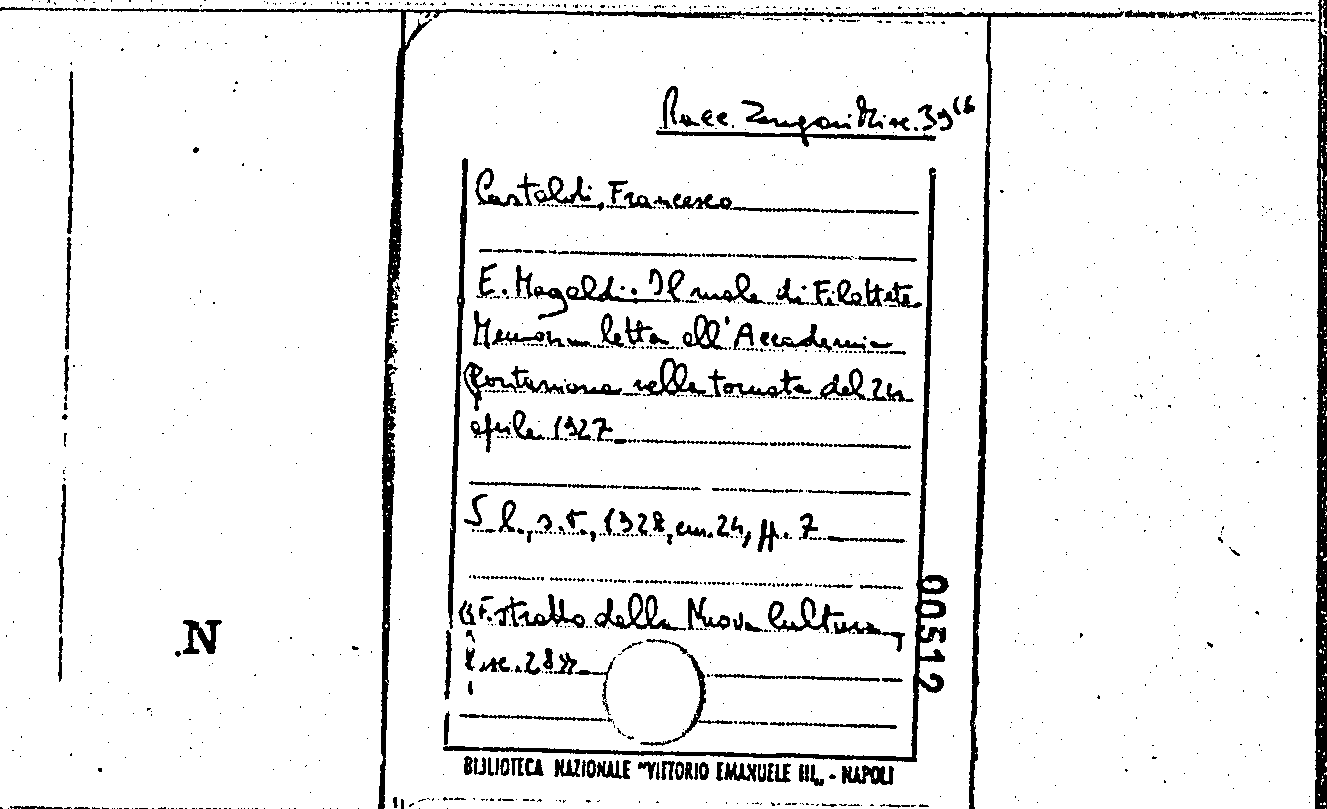 Racc. Zangari Misc. 39(16
Castaldi, Francesco
E. Magaldi: Il male di Filottete.
Memoria letta all'Accademia
Pontaniana nella tornata del 24
aprile 1927
S.l., s.t., 1928, cm. 24, pp. 7
00512
«Estratto della Nuova Cultura,
fasc. 28»
.N
BIBLIOTECA NAZIONALE "VITTORIO EMANUELE III„ - NAPOLI